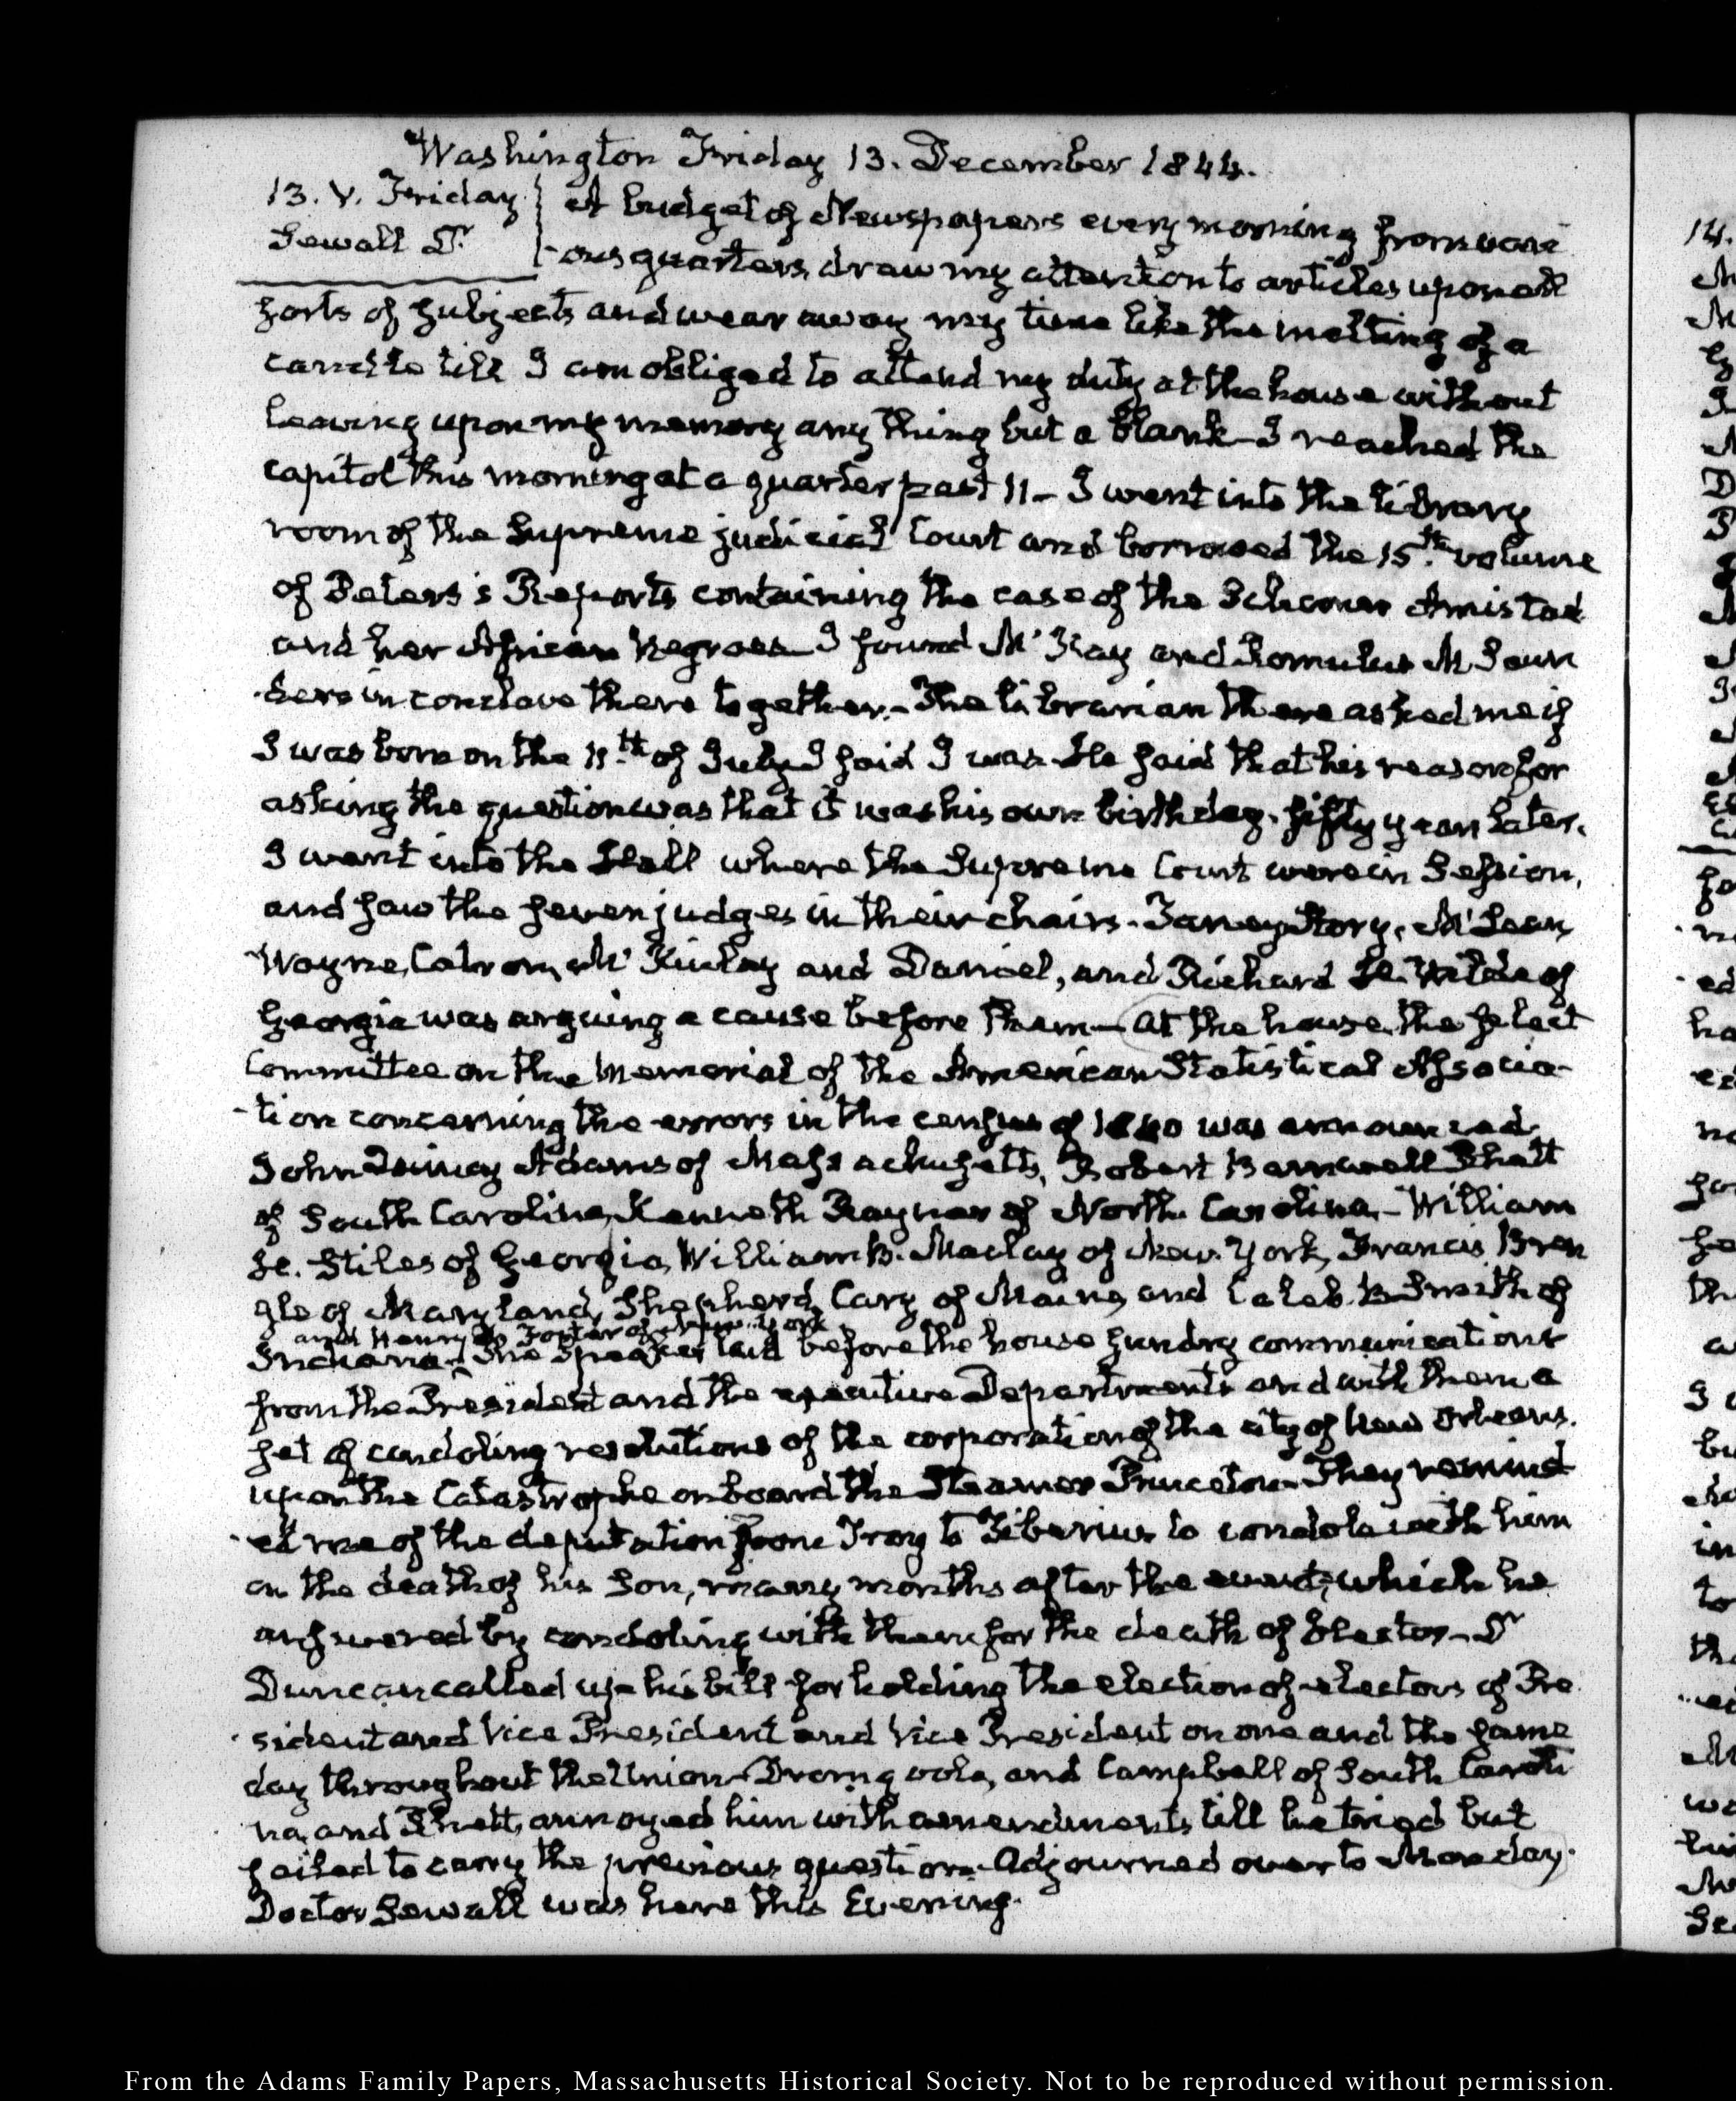 Washington Friday 13. December 1844.
13. V. Friday
Sewall Dr.
A budget of Newspapers every morning from vari
-ous quarters, draw my attention to articles upon all
sorts of subjects and wear away my time like the melting of a
candle till I am obliged to attend my duty at the house without
leaving upon my memory any thing but a blank— I reached the
capitol this morning at a quarter past 11— I went into the library
room of the Supreme judicial Court and borrowed the 15th. volume
of Peters's Reports containing the case of the Schooner Amistad
and her African Negroes— I found McKay and Romulus M Saun
-ders in conclave there together.— The librarian there asked me if
I was born on the 11th. of July. I said I was. He said that his reason for
asking the question was that it was his own birthday. fifty years later.
I went into the Hall where the Supreme Court were in Session,
and saw the seven judges in their chairs. Taney, Story, McLean,
Wayne, Catron, McKinlay and Daniel, and Richard H. Wilde of
Georgia was arguing a cause before them— At the house, the select
Committee on the memorial of the American Statistical Associa-
-tion concerning the errors in the census of 1840 was announced
John Quincy Adams of Massachusetts, Robert Barnwell Rhett
of South Carolina, Kenneth Rayner of North Carolina— William
H. Stiles of Georgia, William B. Maclay of New-York, Francis Bren
gle of Maryland, Shepherd Cary of Maine, and Caleb B Smith of
and Henry D. Foster of New-York
Indiana— The Speaker laid before the house sundry communications
from the President and the executive Departments and with them a
set of condoling resolutions of the corporation of the city of New Orleans.
upon the Catastrophe on board the Steamer Princeton— They remind
-ed me of the deputation from Troy to Tiberius to condole with him
on the death of his Son, many months after the event, which he
answered by condoling with them for the death of Hector— Dr
Duncan called up his bill for holding the election of electors of Pre
-sident and Vice President and Vice President on one and the same
day throughout the Union— Dromgoole, and Campbell of South Caroli
na, and Rhett, annoyed him with amendments till he tried but
failed to carry the previous question— Adjourned over to Monday.
Doctor Sewall was here this Evening.
14.
From the Adams Family Papers, Massachusetts Historical Society. Not to be reproduced without permission.